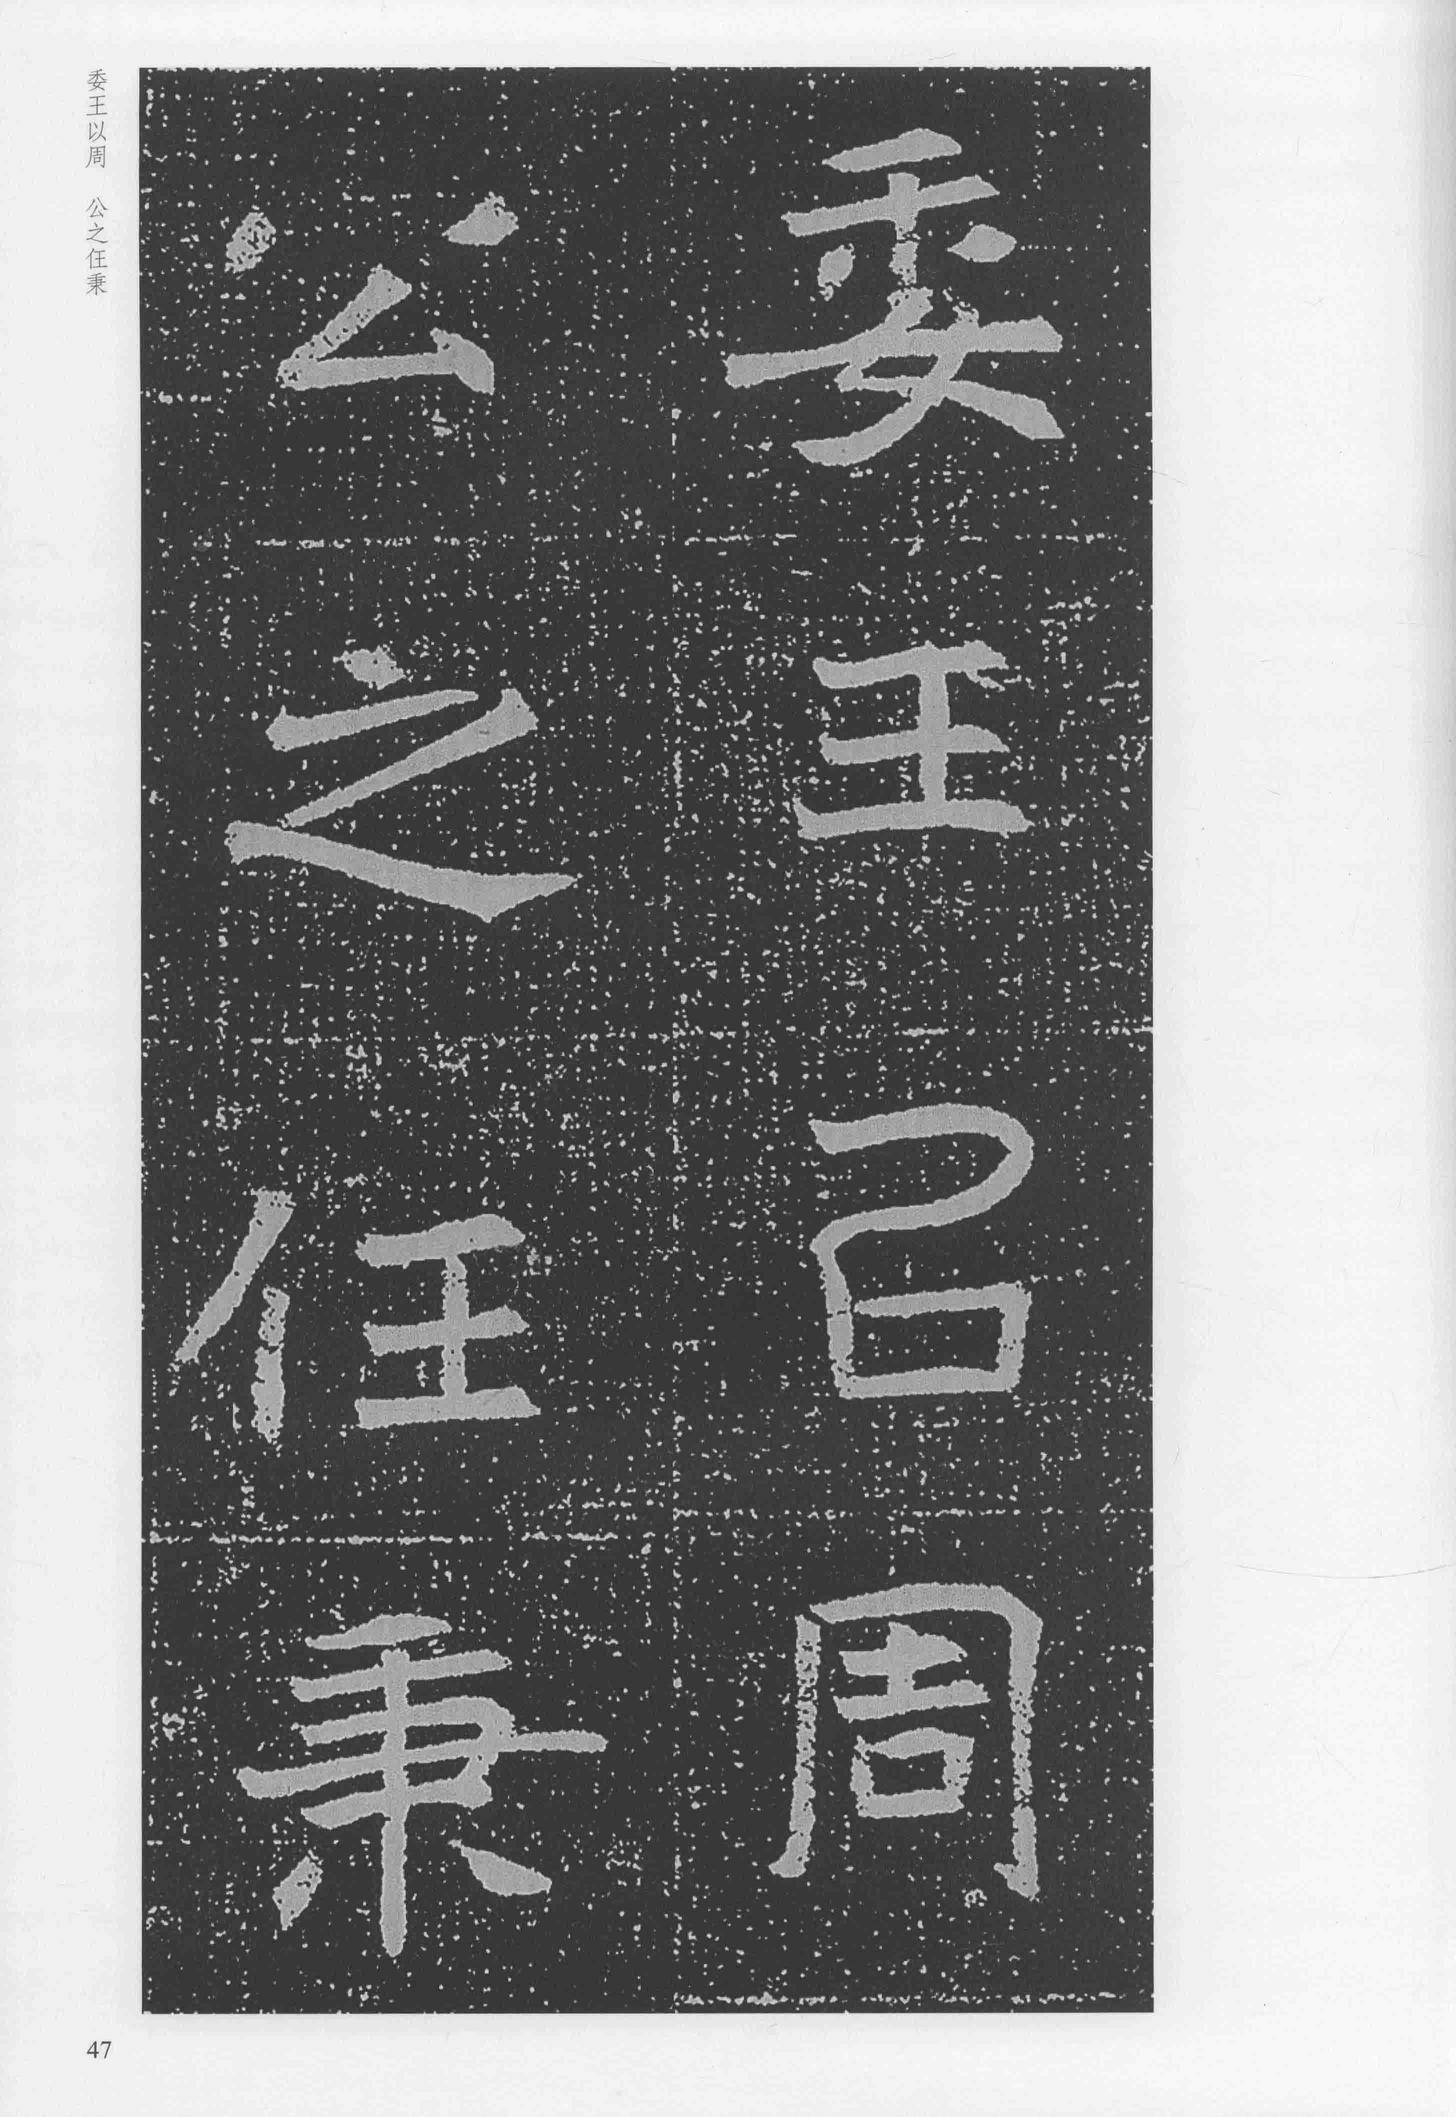 委王㠯周
公之任秉
委王以周　公之任秉
47